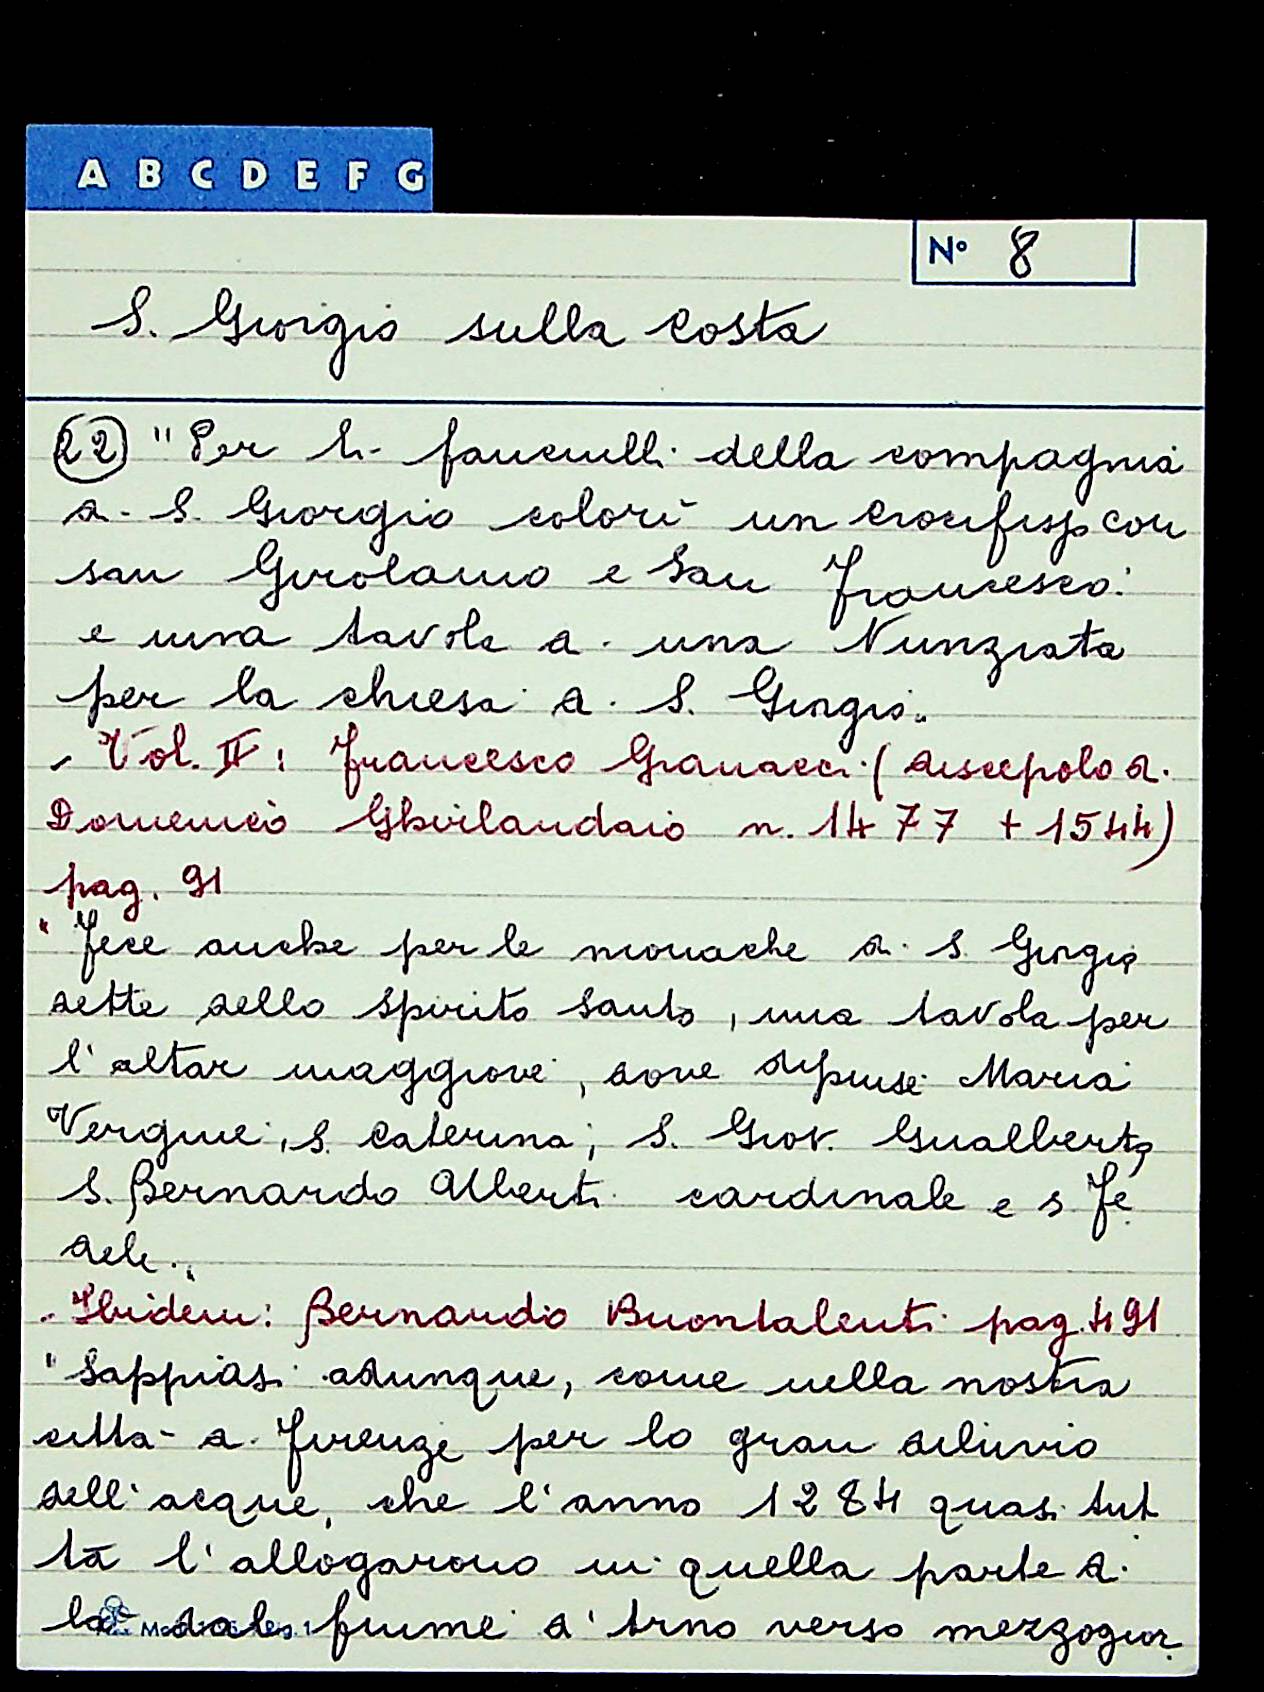 A B C D E F G
N° 8
S. Giorgio sulla Costa
22 "Per li fanciulli della compagnia
di S. Giorgio colorì un Crocifisso con
san Girolamo e San Francesco:
e una tavola di una Nunziata
per la chiesa di S. Giorgio."
- Vol. II: Francesco Granacci (discepolo di
Domenico Ghirlandaio n. 1477 + 1544)
pag. 91
"Fece anche per le monache di S. Giorgio,
dette dello Spirito Santo, una tavola per
l'altar maggiore, dove dipinse Maria
Vergine, S. Caterina, S. Giov. Gualberto,
S. Bernardo Alberti cardinale e s. Fe
dele."
- Ibidem: Bernardo Buontalenti pag. 491
"Sappiasi adunque, come nella nostra
città di Firenze per lo gran diluvio
dell'acque, che l'anno 1284 quasi tut
ta l'allogarono in quella parte di
là dal fiume d'Arno verso mezzogior